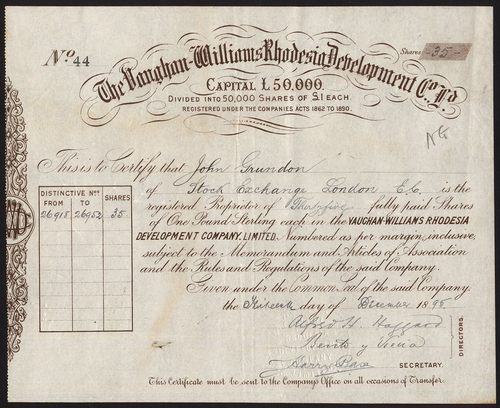 No. 44
Shares -35-
The Vaughan-Williams Rhodesia Development Co. Ld.
CAPITAL £50,000.
DIVIDED INTO 50,000 SHARES OF £1 EACH.
REGISTERED UNDER THE COMPANIES ACTS 1862 TO 1890.
This is to Certify that John Grundon
of Stock Exchange London E.C. is the
registered Proprietor of Thirty five fully paid Shares
of One Pound Sterling each in the VAUGHAN-WILLIAMS RHODESIA
DEVELOPMENT COMPANY, LIMITED, Numbered as per margin, inclusive,
subject to the Memorandum and Articles of Association
and the Rules and Regulations of the said Company.
Given under the Common Seal of the said Company,
the day of December 1895
DISTINCTIVE Nos. SHARES
FROM TO
26918 26952 35
Alfred H. Haggard
DIRECTORS.
Harry SECRETARY.
This Certificate must be sent to the Company's Office on all occasions of Transfer.